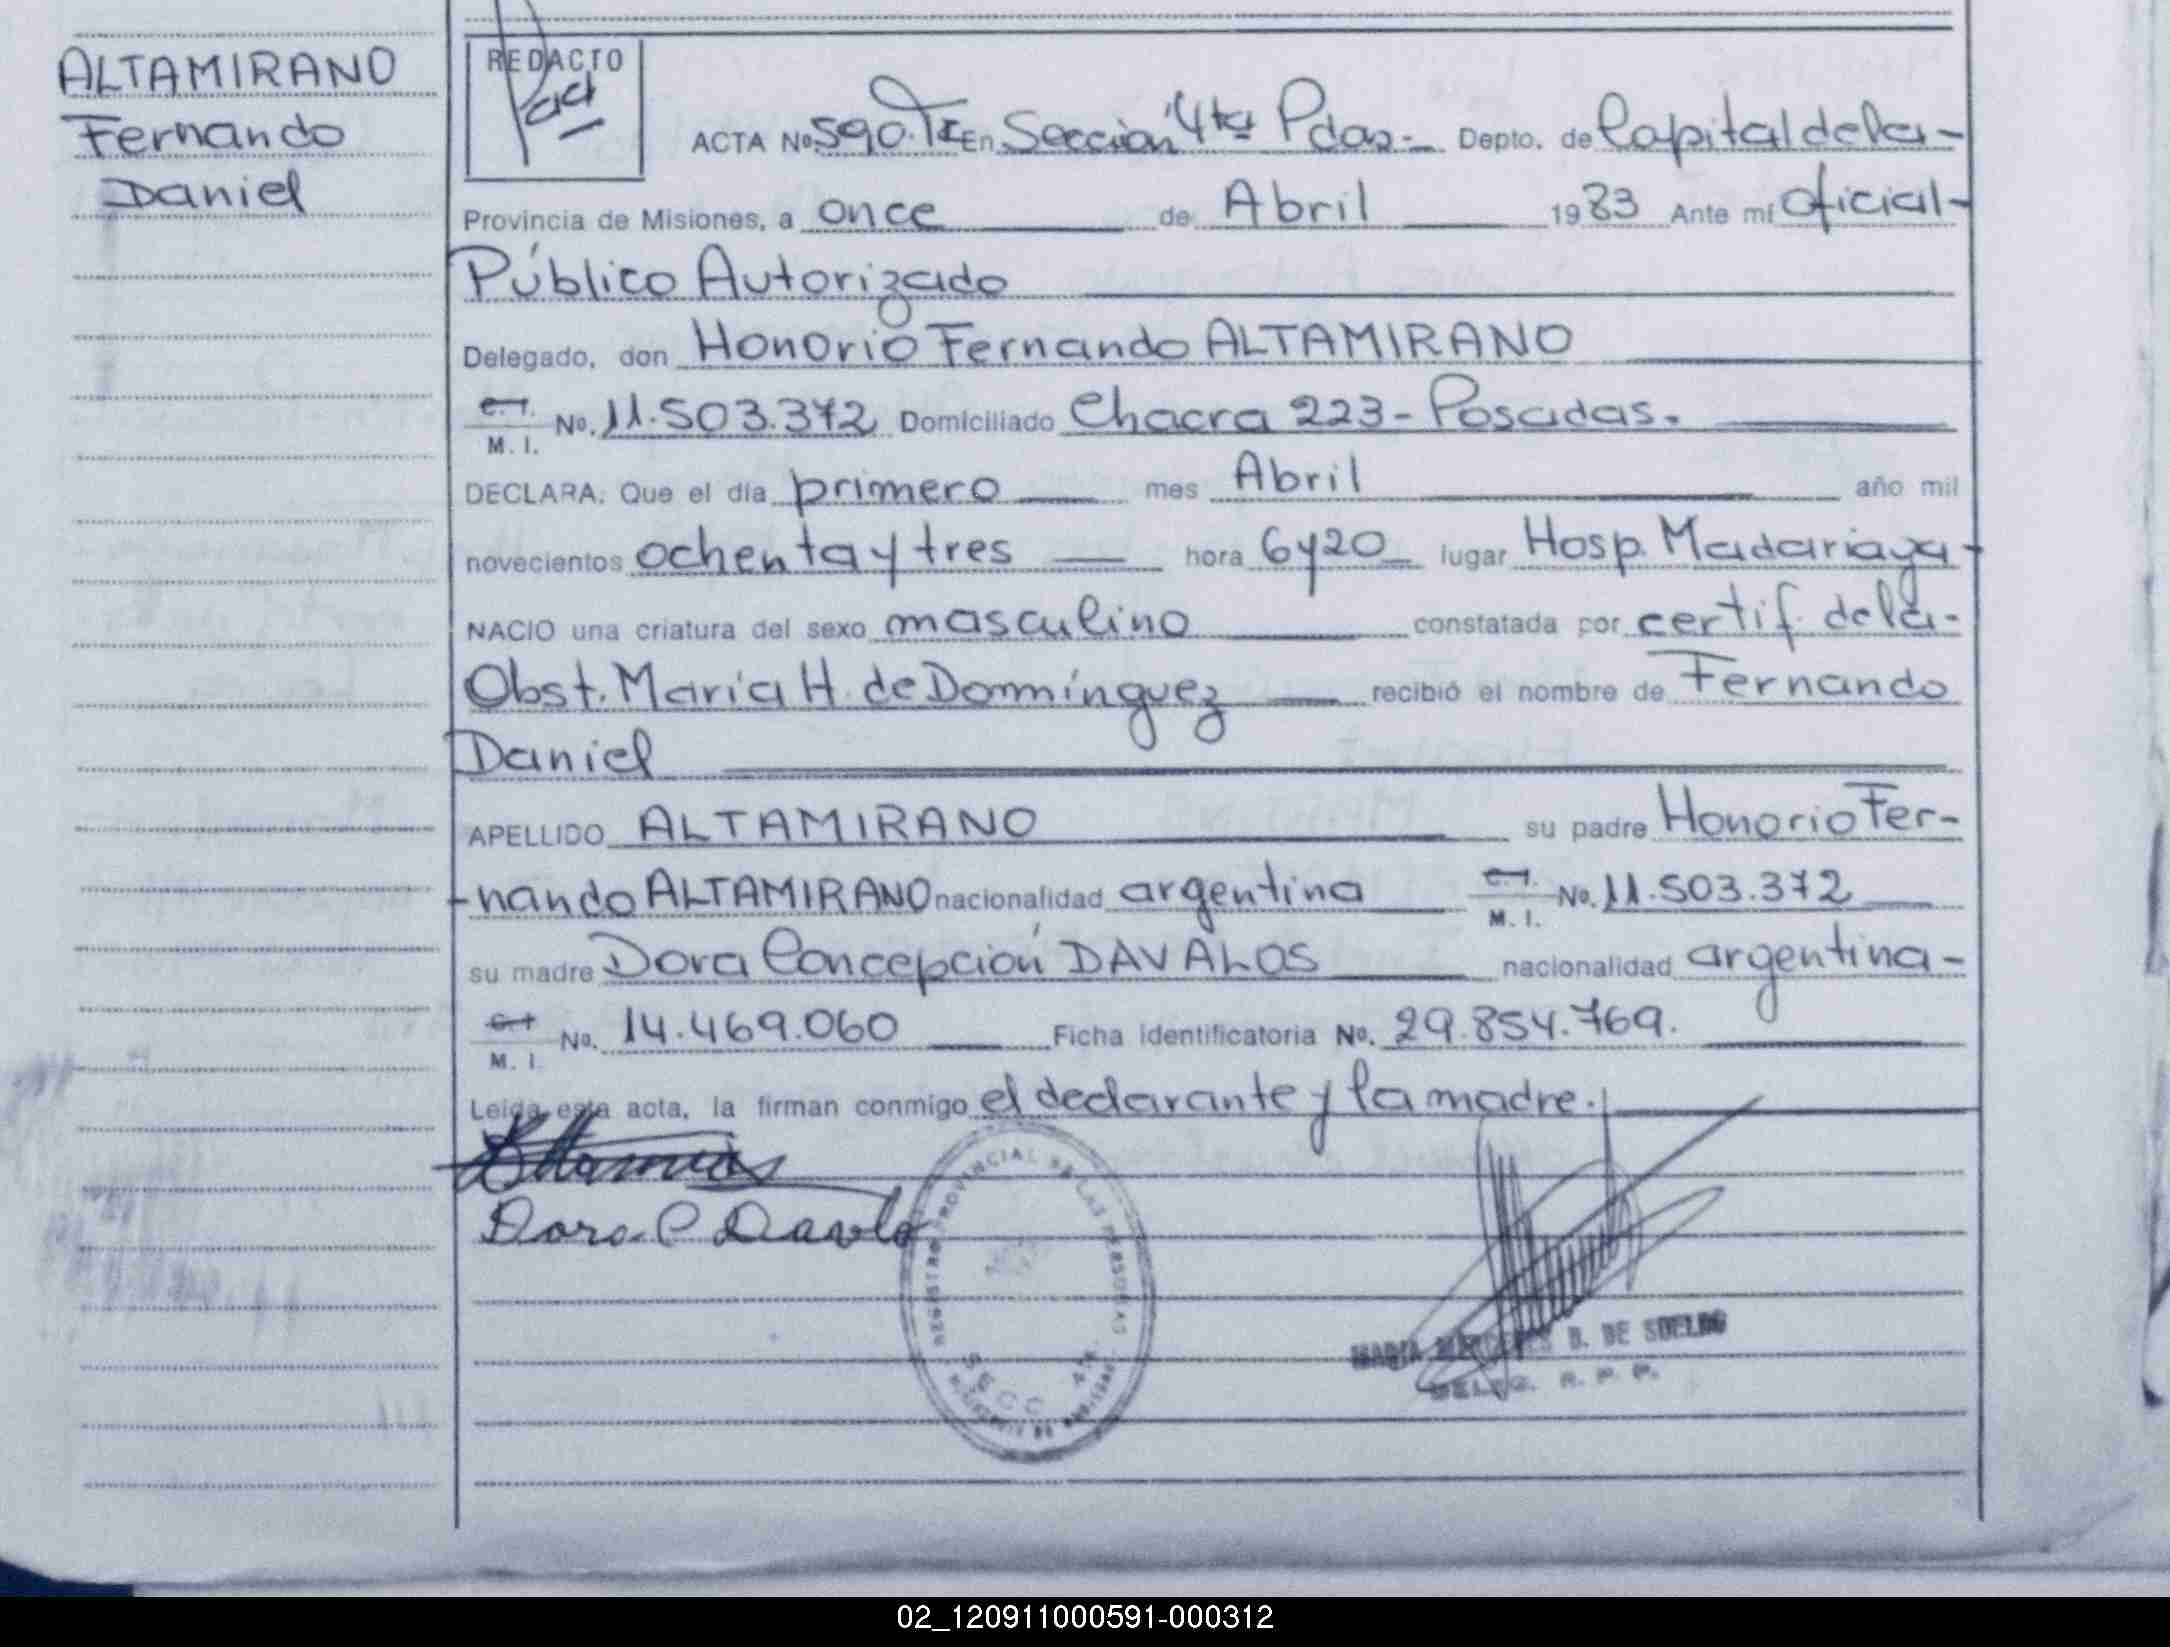 ALTAMIRANO
Fernando
Daniel
REDACTO
ACTA No 590. TI En Sección 4ta Pdas.- Depto. de Capital de la-
Provincia de Misiones, a once de Abril 1983 Ante mí oficial-
Público Autorizado
Delegado, don Honorio Fernando ALTAMIRANO
C.I. M. I. No. 11.503.372 Domiciliado Chacra 223- Posadas.
DECLARA: Que el día primero mes Abril año mil
novecientos ochenta y tres hora 6y20 lugar Hosp. Madariaga-
NACIO una criatura del sexo masculino constatada por certif. de la-
Obst. María H. de Domínguez recibió el nombre de Fernando
Daniel
APELLIDO ALTAMIRANO su padre Honorio Fer-
-nando ALTAMIRANO nacionalidad argentina C.I. M. I. No. 11.503.372
su madre Dora Concepción DAVALOS nacionalidad argentina-
C.I. M. I. No. 14.469.060 Ficha identificatoria No. 29.854.769.
Leída esta acta, la firman conmigo el declarante y la madre.
Dora C Davalo
REGISTRO PROVINCIAL DE LAS PERSONAS
SECC 4ta
MARIA MERCEDES B. DE
DELEG. R. P. P.
02_120911000591-000312